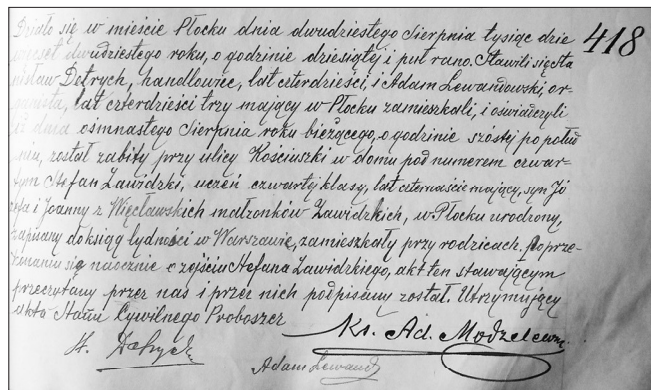 Działo się w mieście Płocku dnia dwudziestego Sierpnia tysiąc dzie
więset dwudziestego roku, o godzinie dziesiątej i puł rano. Stawili się Sta 418
nisław Dętrych, handlowiec, lat czterdzieści, i Adam Lewandowski, or-
ganista, lat czterdzieści trzy mający w Płocku zamieszkali, i oświadczyli
iż dnia osmnastego Sierpnia roku bieżącego, o godzinie szósty po połud
niu, został zabity przy ulicy Kościuszki w domu pod numerem czwar-
tym Stefan Zawidzki, uczeń czwartej klasy, lat czternaście mający, syn Jó
zefa i Joanny z Więcławskich małżonków Zawidzkich, w Płocku urodzony,
zapisany do ksiąg ludności w Warszawie, zamieszkały przy rodzicach. Po prze-
konaniu się naocznie o zejściu Stefana Zawidzkiego, akt ten stawającym
przeczytany przez nas i przez nich podpisany został. Utrzymujący
akta Stanu Cywilnego Proboszcz Ks. Ad. Modzelewski
Adam Lewand